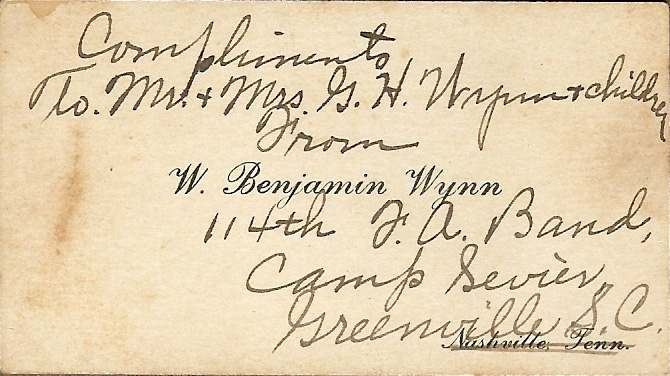 Compliments
To. Mr. + Mrs. G. H. Wynn + children
From
W. Benjamin Wynn
114th F. A. Band,
Camp Sevier,
Greenville S. C.
Nashville, Tenn.